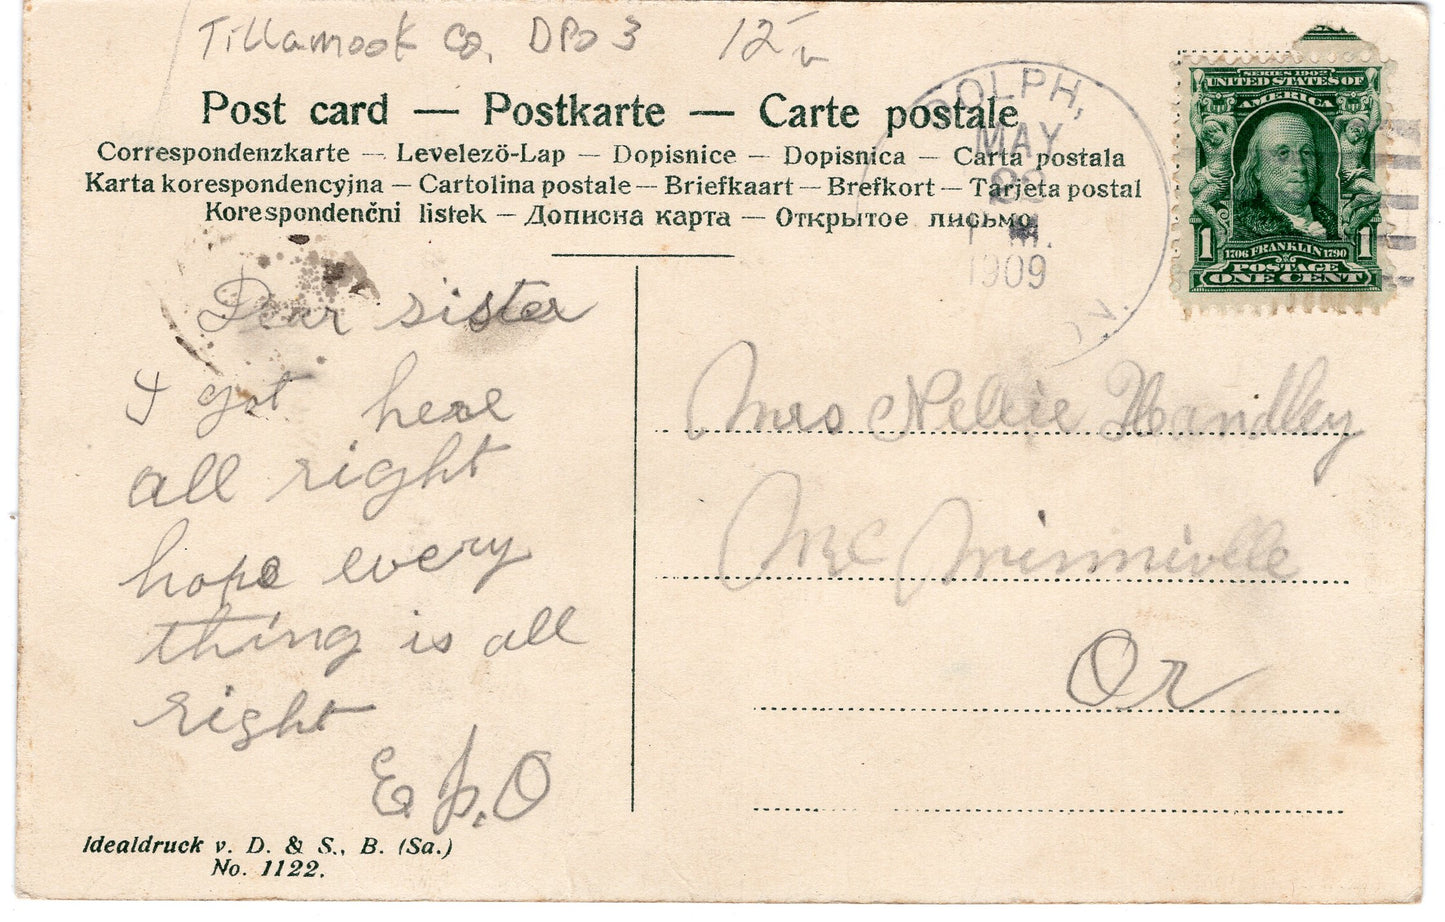 Tillamook Co. DPO 3 12
Post card — Postkarte — Carte postale
Correspondenzkarte — Levelezö-Lap — Dopisnice — Dopisnica — Carta postala
Karta korespondencyjna — Cartolina postale — Briefkaart — Brefkort — Tarjeta postal
Korespondenční listek — Дописна карта — Открытое письмо
DOLPH,
MAY
M.
1909
SERIES 1902
UNITED STATES OF
AMERICA
1 1706 FRANKLIN 1790 1
POSTAGE
ONE CENT
Dear sister
I got here
all right
hope every
thing is all
right
E P. O
Mrs Nellie Handley
Mc Minniville
Or
Idealdruck v. D. & S., B. (Sa.)
No. 1122.